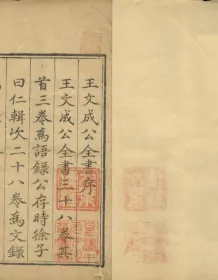 王文成公全書序
王文成公全書三十八卷其
首三卷為語錄公存時徐子
曰仁輯次二十八卷為文錄